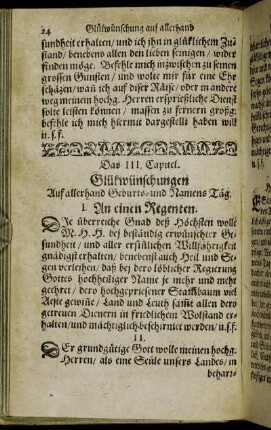 24 Glükwünschung auf allerhand
sundheit erhalten/ und ich ihn in glüklichem Zu
stand/ benebens allen den lieben seinigen/ wider
finden möge. Befehle mich inzwischen zu seinen
grossen Gunsten/ und wolte mir für eine Ehr
schäzen/ wañ ich auf diser Räise/ oder in andere
weg meinen hochg. Herren ersprießliche Dienst
solte leisten können/ massen zu fernern großg:
befehle ich mich hiermit dargestellt haben will
u. s. f.
Das III. Capitel.
Glükwünschungen
Auf allerhand Geburts- und Namens Täg.
I. An einen Regenten.
DIe überreiche Gnad deß Höchsten wolle
M. H. H. bei beständig erwünschter Ge-
sundheit/ und aller ersinlichen Willfährigkeit
gnädigst erhalten/ benebenst auch Heil und Se-
gen verleihen/ daß bei dero löblicher Regierung
Gottes hochheiliger Name je mehr und mehr
geehret/ dero hochgepriesener Stam̃baum vil
Aeste gewiñe/ Land und Leuth sam̃t allen dero
getreuen Dienern in friedlichem Wolstand er-
halten/ und mächtiglich beschirmet werden/ u. s. f.
II.
DEr grundgütige Gott wolle meinen hochg.
Herren/ als eine Seule unsers Landes/ in
behart-